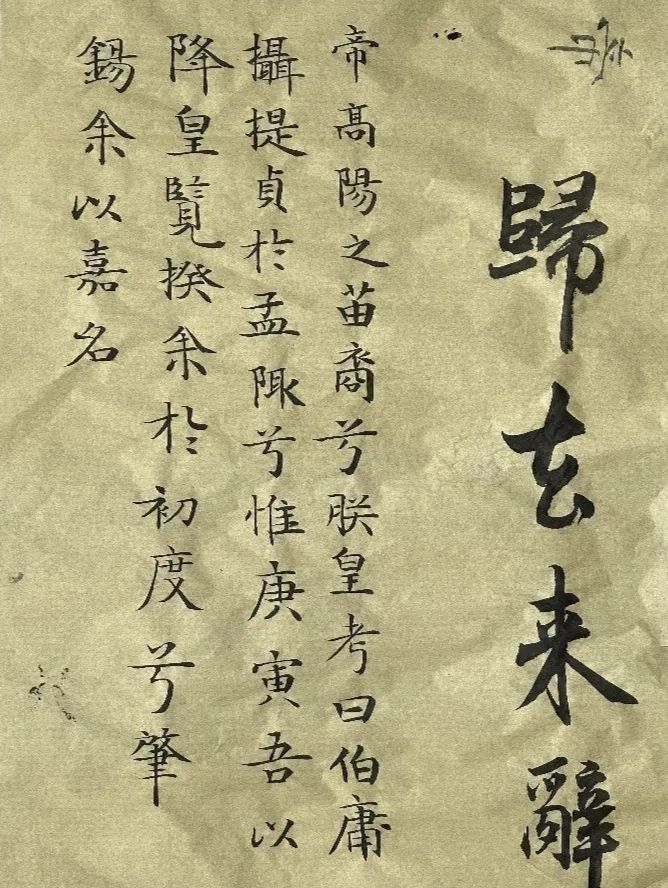 歸去来辭
帝高陽之苗裔兮朕皇考曰伯庸
攝提貞於孟陬兮惟庚寅吾以
降皇覽揆余於初度兮筆
錫余以嘉名